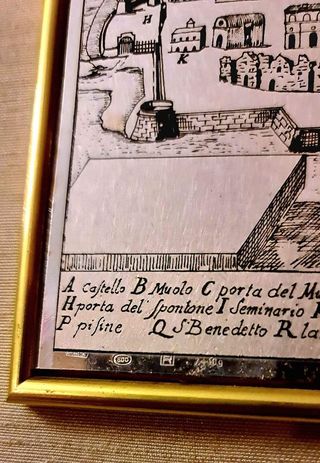 H
K
A castello B Muolo C porta del Mu
H porta del' spontone I Seminario K
P pisine Q S Benedetto R la
800